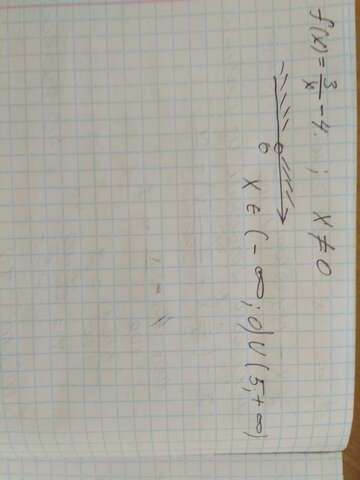 f(x) = 3/x - 4. ; x ≠ 0
0
x ∈ (-∞; 0) ∪ (5, +∞)